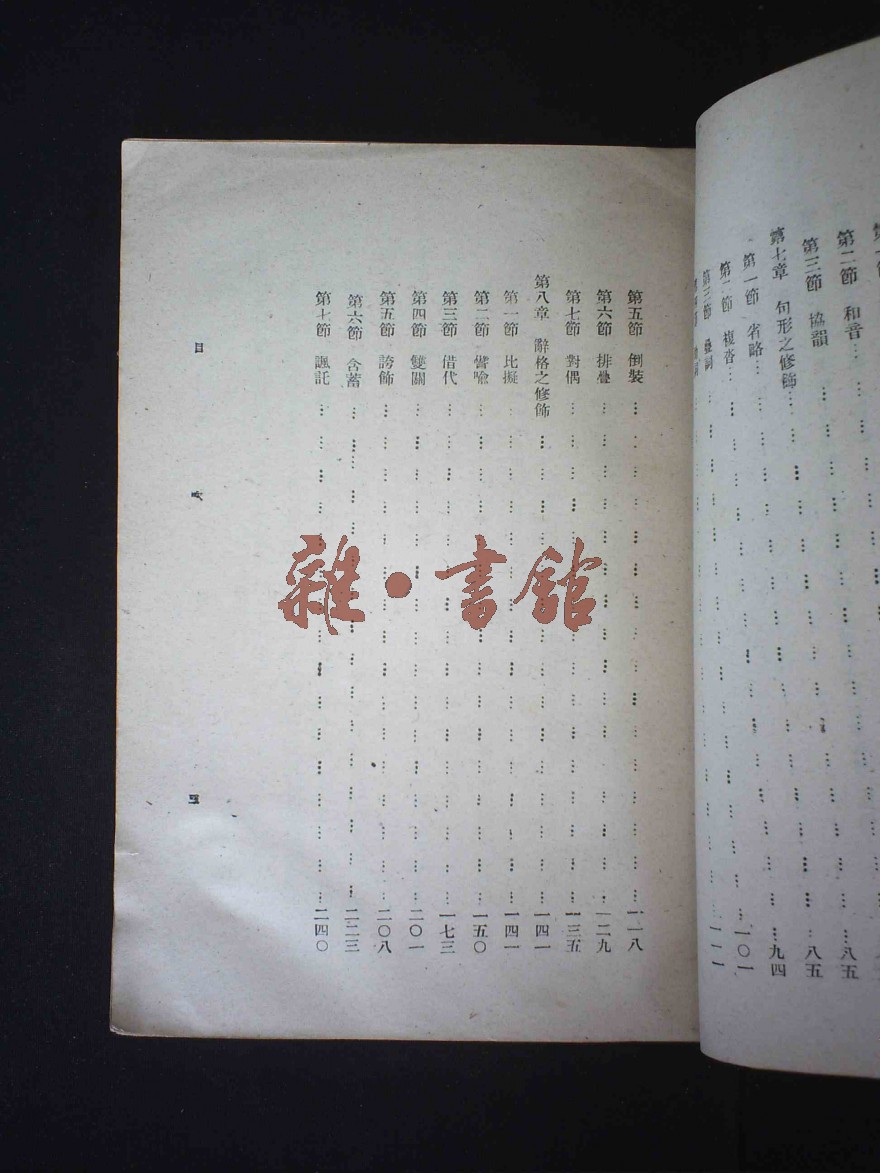 第二節 和音 … 八五
第三節 協韻 … 八五
第七章 句形之修飾 … 九四
第一節 省略 … 一〇一
第二節 複沓 … 一一一
第三節 疊詞
第五節 倒裝 … 一一八
第六節 排疊 … 一二九
第七節 對偶 … 一三五
第八章 辭格之修飾 … 一四一
第一節 比擬 … 一四一
第二節 譬喩 … 一五〇
第三節 借代 … 一七三
第四節 雙關 … 二〇一
第五節 誇飾 … 二〇八
第六節 含蓄 … 二二三
第七節 諷託 … 二四〇
目 四
雜·書館